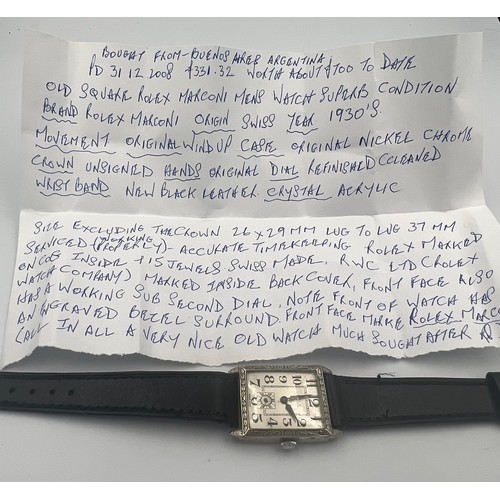 BOUGHT FROM - BUENOS AIRES ARGENTINA
PD 31 12 2008 $331.32 WORTH ABOUT $700 TO DATE
OLD SQUARE ROLEX MARCONI MENS WATCH SUPERB CONDITION
BRAND ROLEX MARCONI ORIGIN SWISS YEAR 1930'S
MOVEMENT ORIGINAL WIND UP CASE ORIGINAL NICKEL CHROME
CROWN UNSIGNED HANDS ORIGINAL DIAL REFINISHED (CLEANED
WRIST BAND NEW BLACK LEATHER CRYSTAL ACRYLIC
SIZE EXCLUDING THE CROWN 26 x 29 MM LUG TO LUG 37 MM
SERVICED (WORKING PROPERLY) - ACCURATE TIMEKEEPING ROLEX MARKED
ON COG INSIDE + 15 JEWELS SWISS MADE. RWC LTD (ROLEX
WATCH COMPANY) MARKED INSIDE BACK COVER, FRONT FACE ALSO
HAS A WORKING SUB SECOND DIAL. NOTE FRONT OF WATCH HAS
AN ENGRAVED BEZEL SURROUND. FRONT FACE MARKE ROLEX MARCO
(ALL IN ALL A VERY NICE OLD WATCH MUCH SOUGHT AFTER